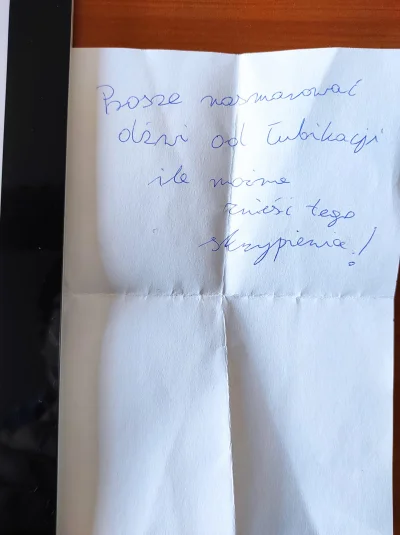 Prosze nasmarować
dźwi od łubikacji
ile można
znieść tego
skrzypienia!